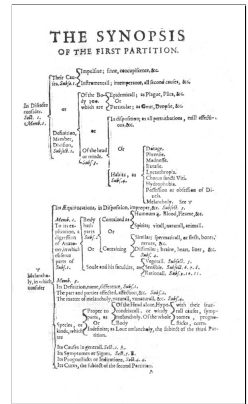 THE SYNOPSIS
OF THE FIRST PARTITION.
Their Cau-
ses, Subs. 1.
Impulsive; sinne, concupiscence, &c.
Instrumentall; intemperance, all second causes, &c.
Or
Of the Bo-
dy 300.
which are
Epidemicall; as Plague, Plica, &c.
Or
Particular; as Gout, Dropsie, &c.
In Diseases
consider.
Sect. 1.
Memb. 1.
or
Definition,
Member,
Division,
Subsect. 2.
or
Of the head
or minde.
Subs. 3.
In disposition; as all perturbations, evill affecti-
ons, &c.
Or
Habits, as
Subs. 4.
Dotage,
Phrensie,
Madnesse,
Extasie,
Lycanthropia,
Chorus sancti Viti,
Hydrophobia,
Possession or obsession of Di-
vels.
Melancholy. See ♈
♈
Melancho-
ly, in which
consider
Its Æquivocations, in Disposition, improper, &c. Subsect. 5.
Memb. 2.
To its ex-
plication, a
digression
of Anato-
my, in which
observe
parts of
Subs. 1.
Body
hath
parts
Subs. 2.
Contained as
Humours 4. Blood, Fleame, &c.
Or
Spirits; vitall, naturall, animall.
Or
Containing
Similar; spermaticall, or flesh, bones,
nerves, &c. Subs. 3.
Dissimilar; braine, heart, liver, &c.
Subs. 4.
Soule and his faculties, as
Vegetall. Subsect. 5.
Sensible. Subsect. 6. 7. 8.
Rationall. Subsect. 9. 10. 11.
Memb. 3.
Its Definition, name, difference, Subs. 1.
The part and parties affected, affection, &c. Subs. 2.
The matter of melancholy, naturall, unnaturall, &c. Subs. 4.
Species, or
kinds, which
are
Proper to
parts, as
Of the Head alone, Hypo-
condriacall, or windy
melancholy. Of the whole
Body
with their seve-
rall causes, symp-
tomes, progno-
sticks, cures.
Or
Indefinite; as Love melancholy, the subject of the third Parti-
tion.
Its Causes in generall. Sect. 2. A.
Its Symptomes or Signes. Sect. 3. B.
Its Prognosticks or Indications. Sect. 4. 4.
Its Cures, the subject of the second Partition.